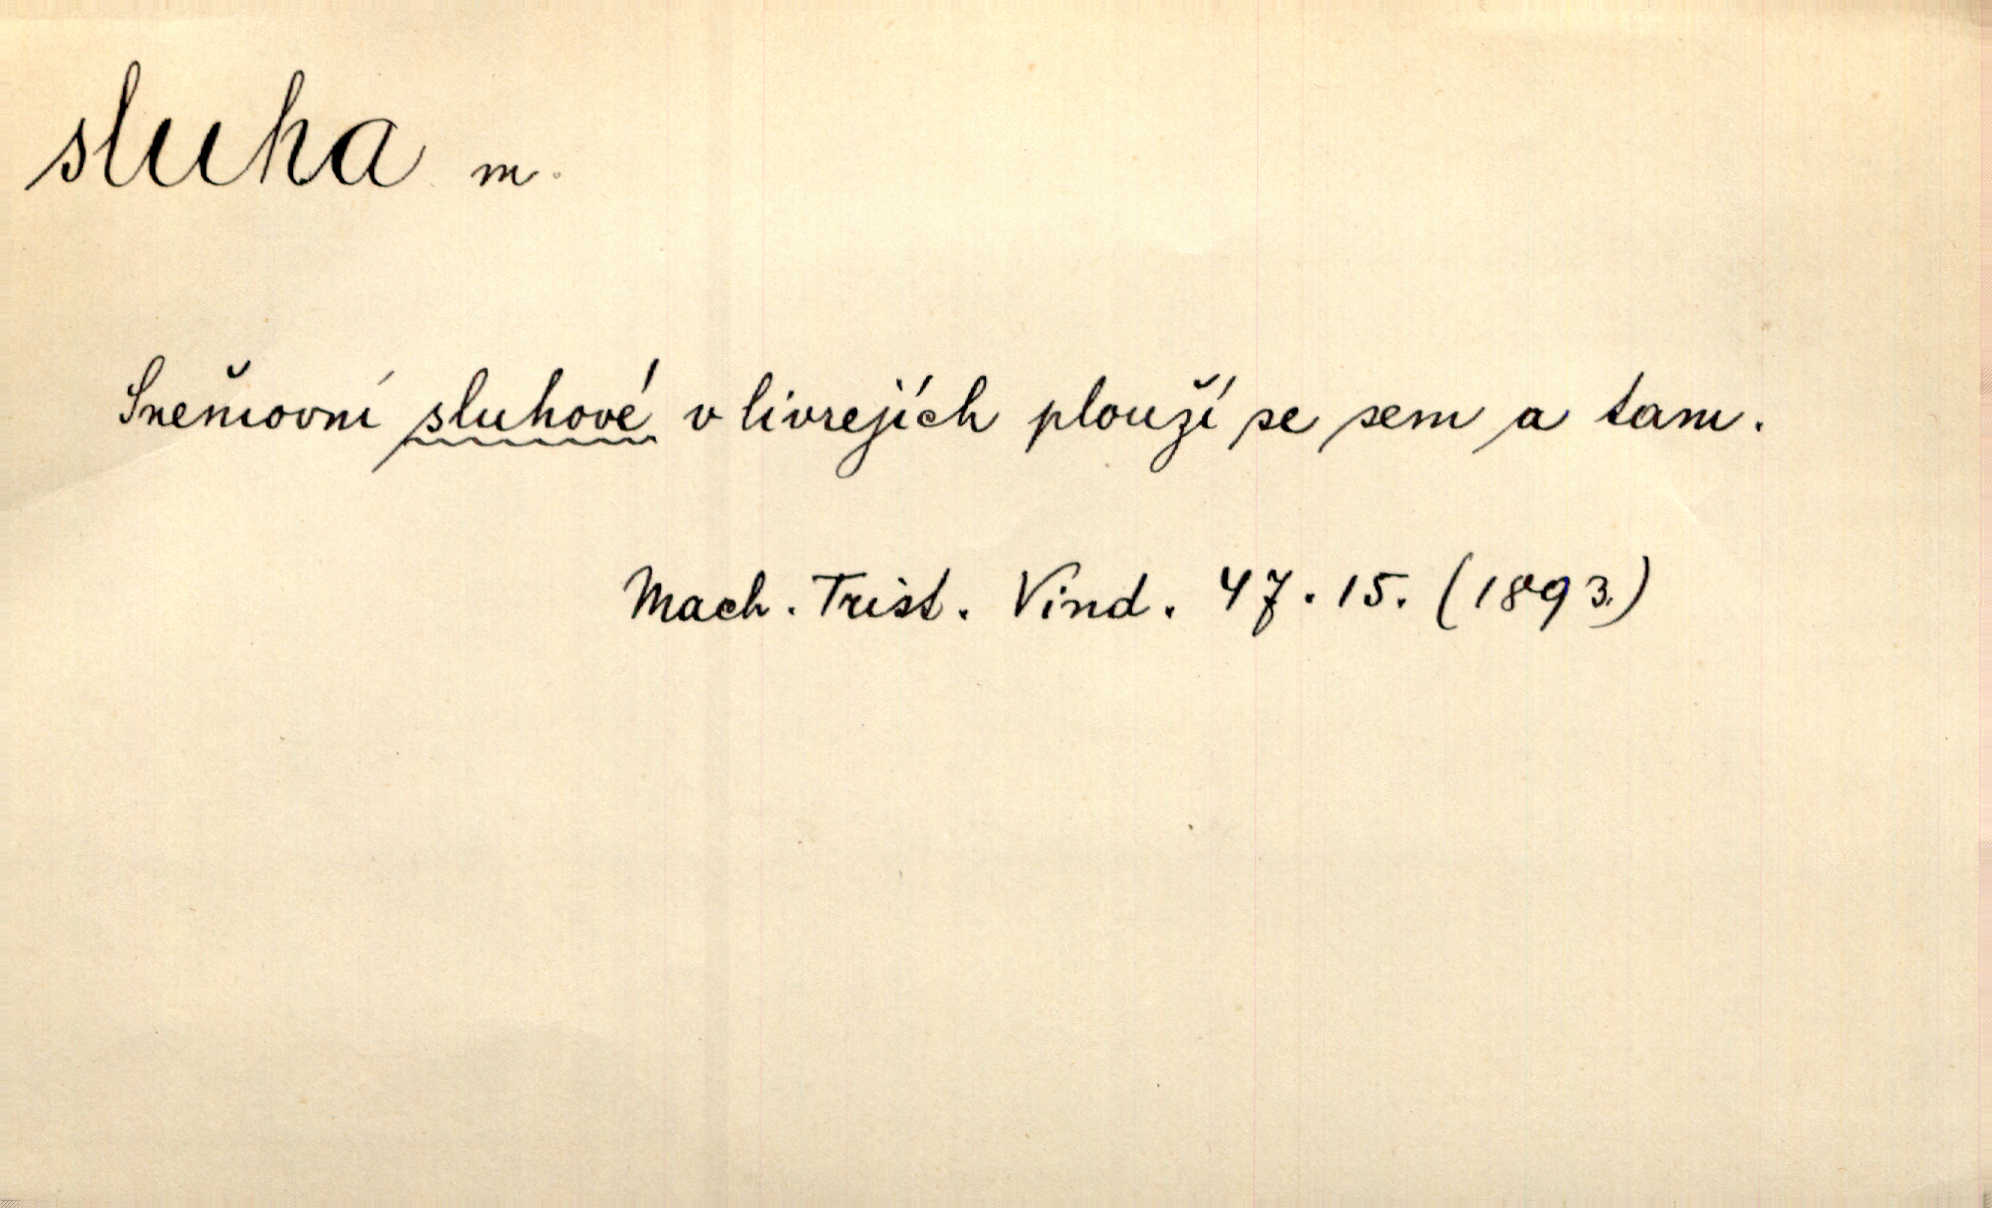 sluha m.
Sněmovní sluhové v livrejích plouží se sem a tam.
Mach. Trist. Vind. 47. 15. (1893.)